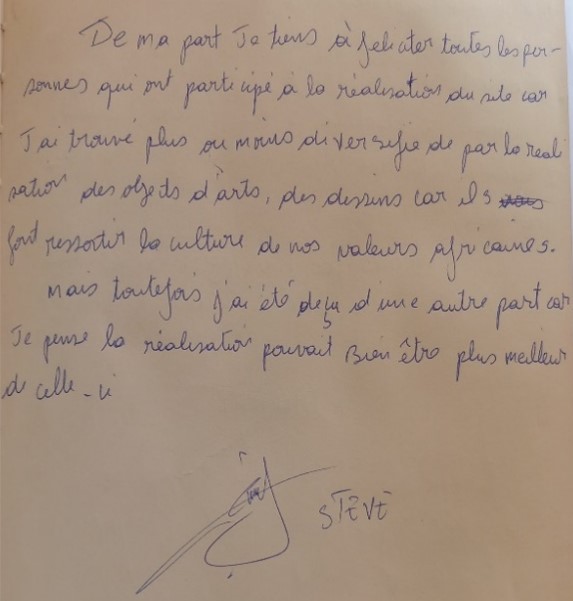 De ma part Je tiens à feliciter toutes les per-
sonnes qui ont participé à la réalisation du site car
J'ai trouvé plus ou moins diversifie de par la reali
sation des objets d'arts, des dessins car ils
font ressortir la culture de nos valeurs africaines.
Mais toutefois j'ai été deçu d'une autre part car
Je pense la réalisation pouvait Bien être plus meilleur
de celle-ci
STEVE